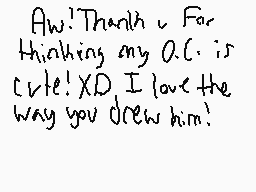 Aw! Thank u For
thinking my O.C. is
cute! XD I love the
way you drew him!